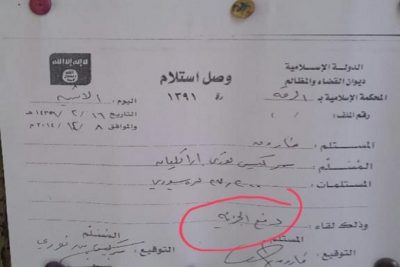 الدولة الإسلامية
ديوان القضاء والمظالم
المحكمة الإسلامية بـ الرقة
رقم الملف: / /
وصل استلام
رقم ١٣٩١
لا إله إلا الله
اليوم: الاثنين
التاريخ ١٦ / ٢ / ١٤٣٦هـ
والموافق ٨ / ١٢ / ٢٠١٤م
المستلم: فاروق
المُسَلِّم: سركيس نوري اراكليان
المستلمات: سوري
وذلك لقاء: دفع الجزية
المستلم
التوقيع: فاروق
المُسَلِّم
التوقيع: سركيس نوري